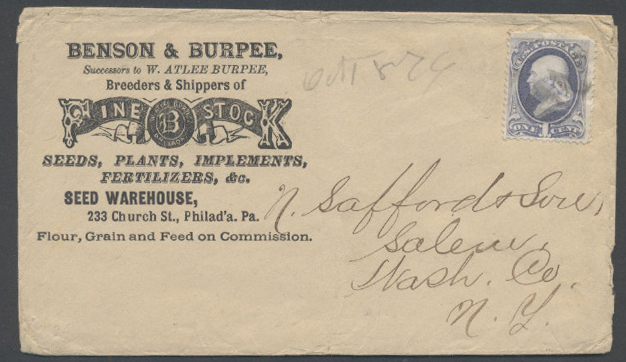 BENSON & BURPEE,
Successors to W. ATLEE BURPEE,
Breeders & Shippers of
FINE B STOCK
SEEDS, PLANTS, IMPLEMENTS,
FERTILIZERS, &c.
SEED WAREHOUSE,
233 Church St., Philad'a. Pa.
Flour, Grain and Feed on Commission.
Oct 8 79
U.S. POSTAGE
ONE 1 CENT
N. Safford & Son,
Salem,
Wash. Co.
N. Y.